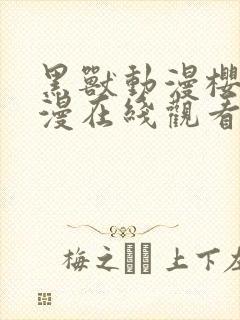 黑獸動漫櫻
漫在綫觀看
梅之 上下左